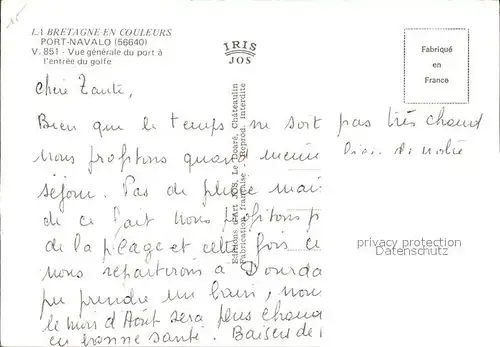 LA BRETAGNE EN COULEURS
PORT-NAVALO (56640)
V. 851 - Vue générale du port à
l'entrée du golfe
IRIS
JOS
Fabriqué
en
France
Editions d'Art JOS, Le Doaré, Châteaulin
Fabrication française - Reprod. interdite
Chère Tante,
Bien que le temps ne soit pas très chaud
nous profitons quand même bien de notre
séjour. Pas de pluie mais
de ce fait nous profitons p
de la plage et cette fois ci
nous repartirons à Dourda
pu prendre un bain, nou
le mois d'Août sera plus chaud
en bonne santé. Baisers de
privacy protection
Datenschutz